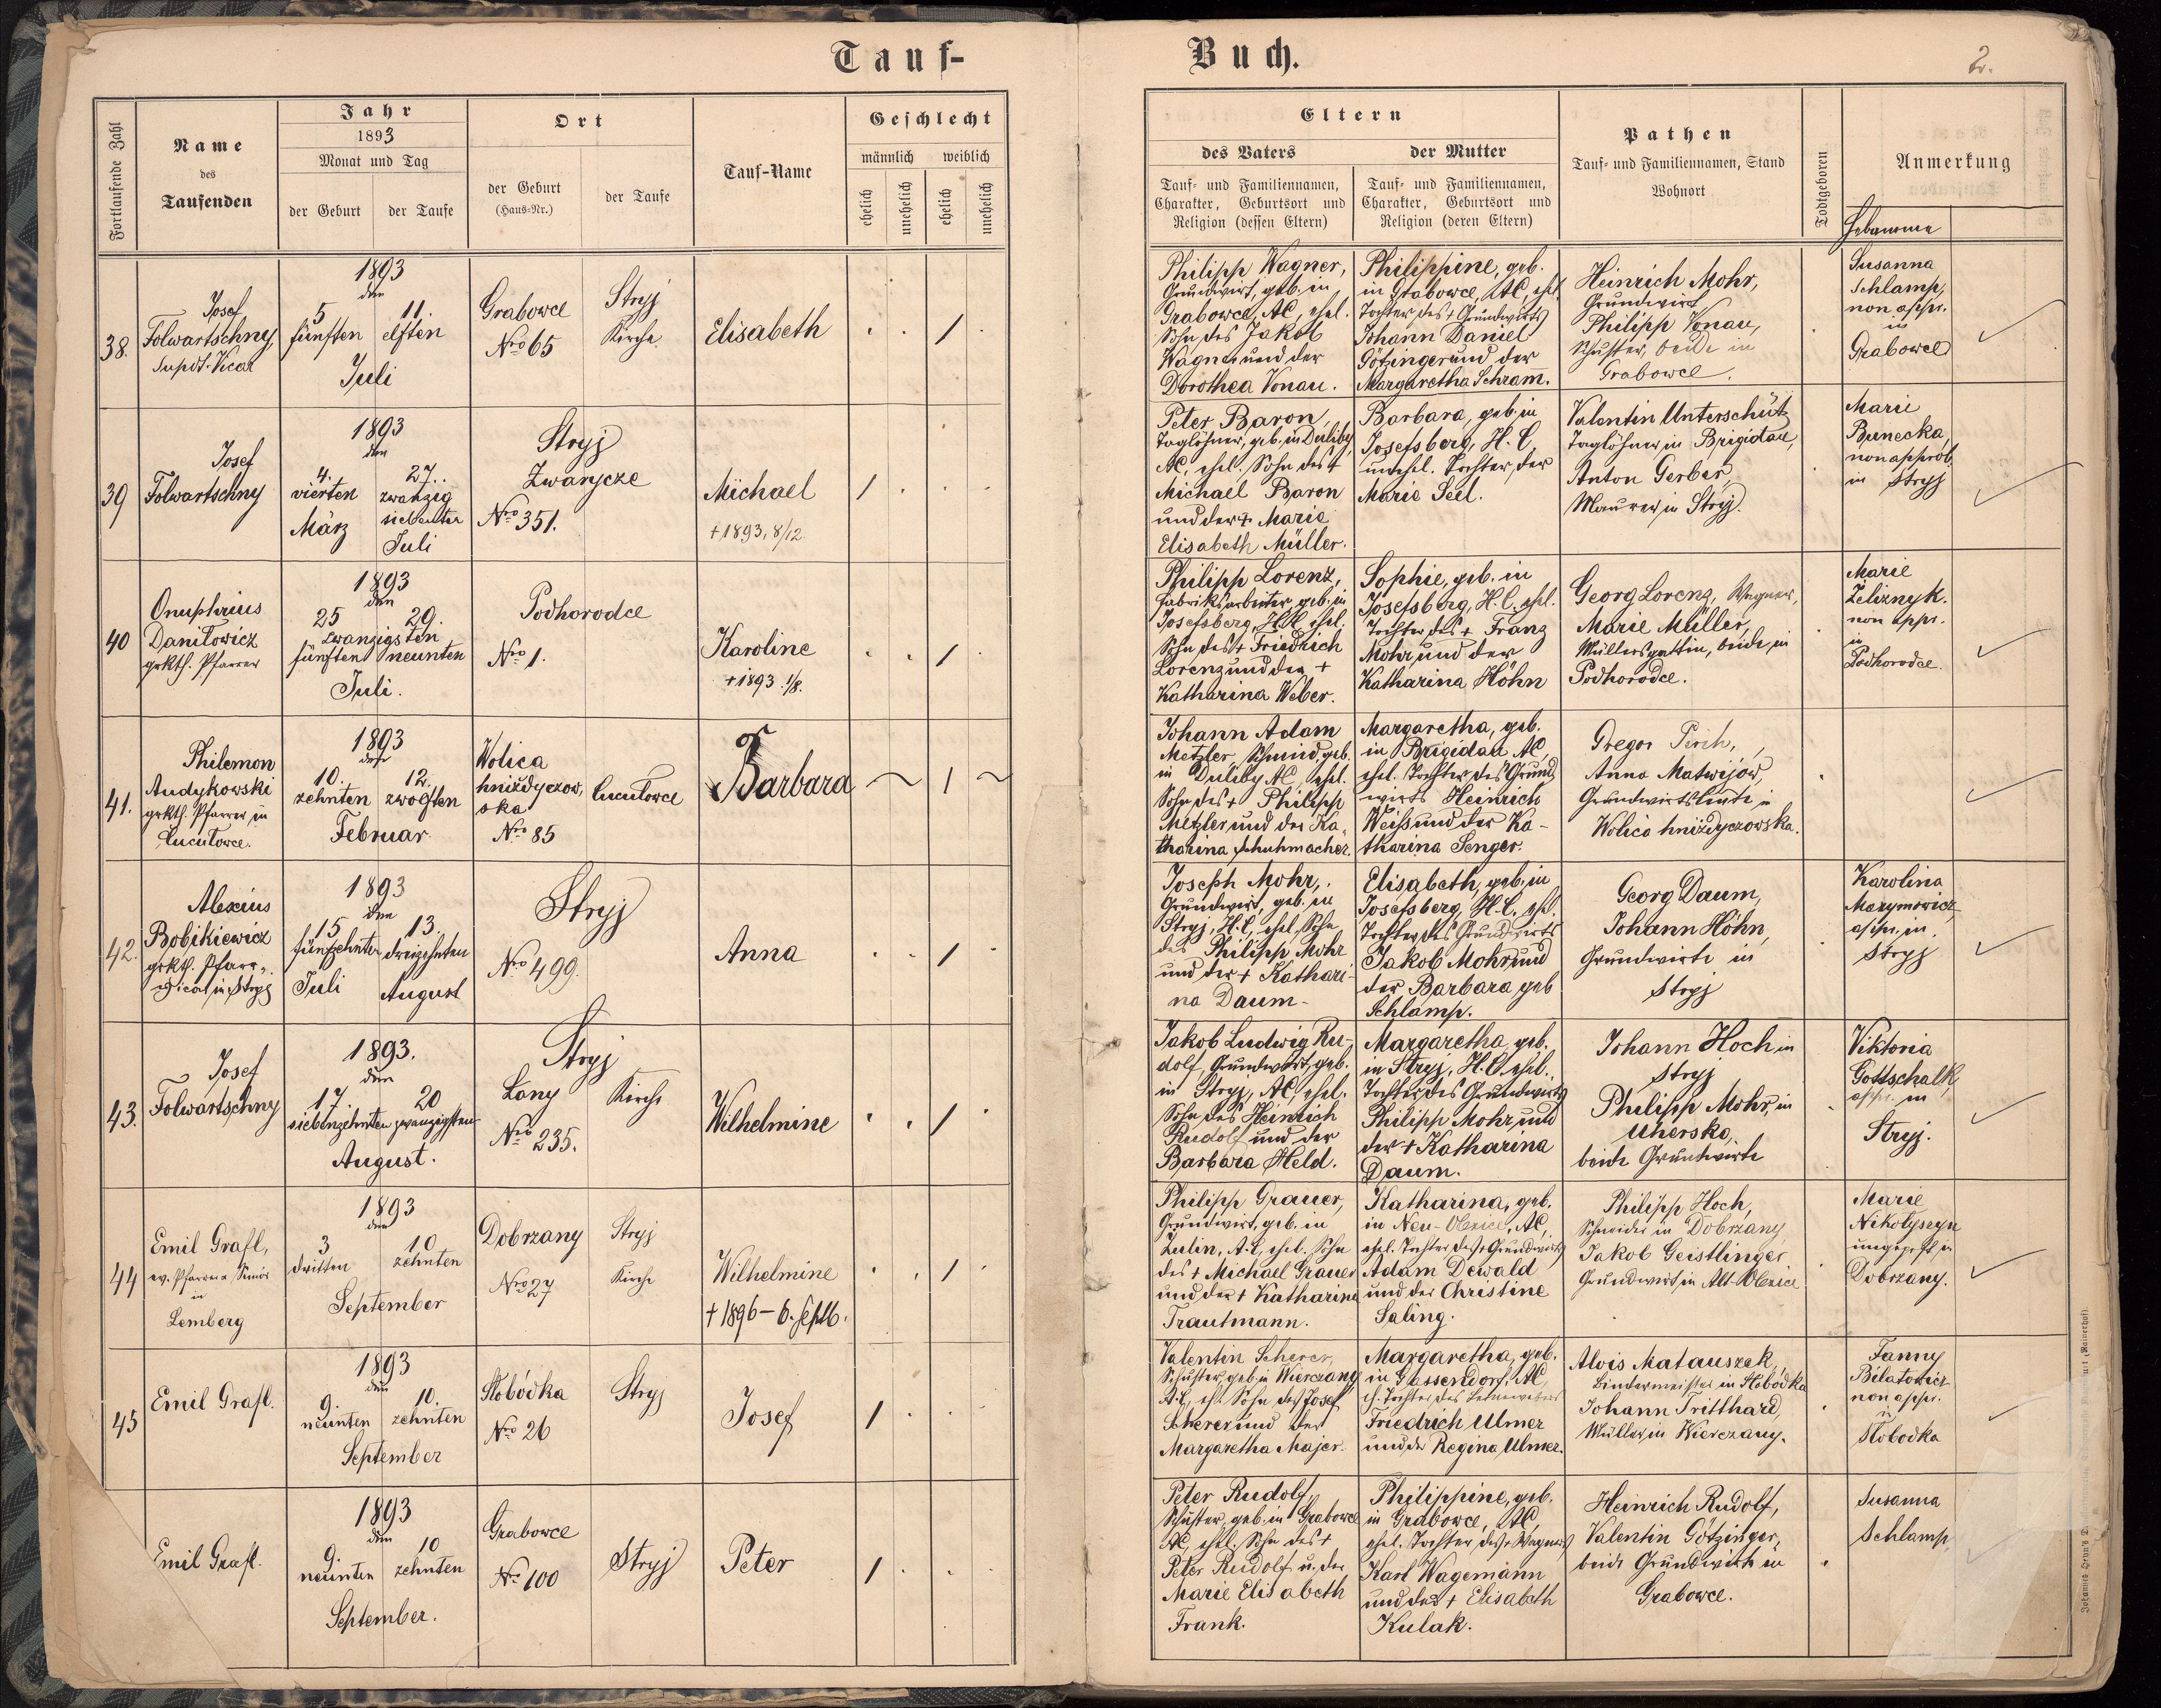 Tauf-
Buch.
2.
Fortlaufende Zahl
Name
des
Taufenden
Jahr
1893
Monat und Tag
der Geburt
der Taufe
Ort
der Geburt
(Haus-Nr.)
der Taufe
Tauf-Name
Geschlecht
männlich
weiblich
ehelich
unehelich
ehelich
unehelich
Eltern
des Vaters
Tauf- und Familiennamen,
Charakter, Geburtsort und
Religion (dessen Eltern)
der Mutter
Tauf- und Familiennamen,
Charakter, Geburtsort und
Religion (deren Eltern)
Pathen
Tauf- und Familiennamen, Stand
Wohnort
Todtgeboren
Anmerkung
Hebamme
38.
Josef
Folwartschny
Supdt. Vicar
1893
den
5 11.
fünften elften
Juli
Grabowce
Nro 65
Stryj
Kirche
Elisabeth
Philipp Wagner,
Grundwirt, geb. in
Grabowce, AC, ehel.
Sohn des Jakob
Wagner und der
Dorothea Vonau.
Philippine, geb.
in Grabowce, AC, ehel.
Tochter des + Grundwirts
Johann Daniel
Götzinger und der
Margaretha Schram.
Heinrich Mohr,
Grundwirt
Philipp Vonau,
Schuster, beide in
Grabowce.
Susanna
Schlamp,
non appr.
in
Grabowce
39
Josef
Folwartschny
1893
den
4. 27.
vierten zwanzig
siebenten
März Juli
Stryj
Zwarycze
Nro 351.
Michael
+ 1893, 8/12
Peter Baron,
Taglöhner, geb. in Duliby,
AC, ehel. Sohn des +
Michael Baron
und der + Marie
Elisabeth Müller.
Barbara, geb. in
Josefsberg, H. C,
unehel. Tochter der
Marie Seel.
Valentin Unterschütz
Taglöhner in Brigidau,
Anton Gerber,
Maurer in Stryj.
Marie
Bunecka,
non approb.
in Stryj
40
Onuphrius
Daniłowicz
grkth. Pfarrer
1893
den
25 29.
zwanzigsten
fünften neunten
Juli.
Podhorodce
Nro 1.
Karoline
+ 1893. 1/8.
Philipp Lorenz,
Fabriksarbeiter, geb. in
Josefsberg, HC, ehel.
Sohn des + Friedrich
Lorenz und der +
Katharina Weber.
Sophie, geb. in
Josefsberg, H. C, ehel.
Tochter des + Franz
Mohr und der
Katharina Höhn
Georg Lorenz, Wagner,
Marie Müller,
Müllersgattin, beide in
Podhorodce.
Marie
Želiznyk.
non appr.
in
Podhorodce.
41.
Philemon
Audykowski
grkth. Pfarrer in
Łucułowce.
1893
den
10. 12.
zehnten zwölften
Februar
Wolica
hniżdyczow,
ska
Nro 85
Łucułowce
Barbara
Johann Adam
Metzler, Schmied, geb.
in Duliby AC, ehel.
Sohn des + Philipp
Metzler und der Ka-
tharina Schuhmacher.
Margaretha, geb.
in Brigidau AC,
ehel. Tochter des Grund
wirts Heinrich
Weiss und der Ka-
tharina Senger.
Gregor Pirch,
Anna Matwijow,
Grundwirtsleute in
Wolica hniżdyczowska.
42.
Alexius
Bobikiewicz
grkth. Pfarr-
vicar in Stryj
1893
den
15 13.
fünfzehnten dreizehnten
Juli August
Stryj
Nro 499.
Anna
Joseph Mohr,
Grundwirt, geb. in
Stryj, H. C, ehel. Sohn
des Philipp Mohr
und der + Kathari-
na Daum-
Elisabeth, geb. in
Josefsberg, H. C, ehl.
Tochter des Grundwirts
Jakob Mohr und
der Barbara geb
Schlamp.
Georg Daum,
Johann Höhn,
Grundwirte in
Stryj
Karolina
Maxymowicz
appr. in
Stryj
43.
Josef
Folwartschny
1893.
den
17. 20
siebenzehnten zwanzigsten
August.
Stryj
Łany
Nro 235.
Kirche
Wilhelmine
Jakob Ludwig Ru-
dolf, Grundwirt, geb.
in Stryj, AC, ehel.
Sohn des Heinrich
Rudolf und der
Barbara Held.
Margaretha, geb.
in Stryj, H. C, ehel.
Tochter des Grundwirts
Philipp Mohr und
der + Katharina
Daum.
Johann Hoch in
Stryj
Philipp Mohr, in
Uhersko,
beide Grundwirte
Viktoria
Gottschalk
appr. in
Stryj.
44
Emil Grafl,
ev. Pfarrer u. Senior
in
Lemberg
1893
den
3 10
dritten zehnten
September
Dobrzany
Nro 27
Stryj
Kirche
Wilhelmine
+ 1896 – 6. Septb.
Philipp Grauer,
Grundwirt, geb. in
Zulin, A. C, ehel. Sohn
des + Michael Grauer
und der + Katharina
Trautmann.
Katharina, geb.
in Neu-Olexice, AC,
ehel. Tochter des + Grundwirts
Adam Dewald
und der Christine
Saling.
Philipp Hoch,
Schneider in Dobrzany
Jakob Geistlinger
Grundwirt in Alt-Olexice
Marie
Nikołyszyn
ungeprft in
Dobrzany.
45
Emil Grafl.
1893
den
9. 10.
neunten zehnten
September
Słobódka
Nro 26
Stryj
Josef
Valentin Scherer,
Schuster, geb. in Wierczany,
A.C, eh. Sohn des Josef
Scherer und der
Margaretha Majer.
Margaretha, geb.
in Gassendorf, AC,
eh. Tochter des Leinewebers
Friedrich Ulmer
und der Regina Ulmer.
Alois Matauszek,
Bindermeister in Słobódka
Johann Tritthard,
Müller in Wierczany.
Fanny
Biłatowicz
non appr.
in
Słobodka
Emil Grafl.
1893
den
9. 10
neunten zehnten
September.
Grabowce
Nro 100
Stryj
Peter
Peter Rudolf,
Schuster, geb. in Grabowce
AC, ehel. Sohn des +
Peter Rudolf u. der
Marie Elisabeth
Frank.
Philippine, geb.
in Grabowce, AC
ehel. Tochter des + Wagners
Karl Wagemann
und der + Elisabeth
Kulak.
Heinrich Rudolf,
Valentin Götzinger,
beide Grundwirte in
Grabowce.
Susanna
Schlamp